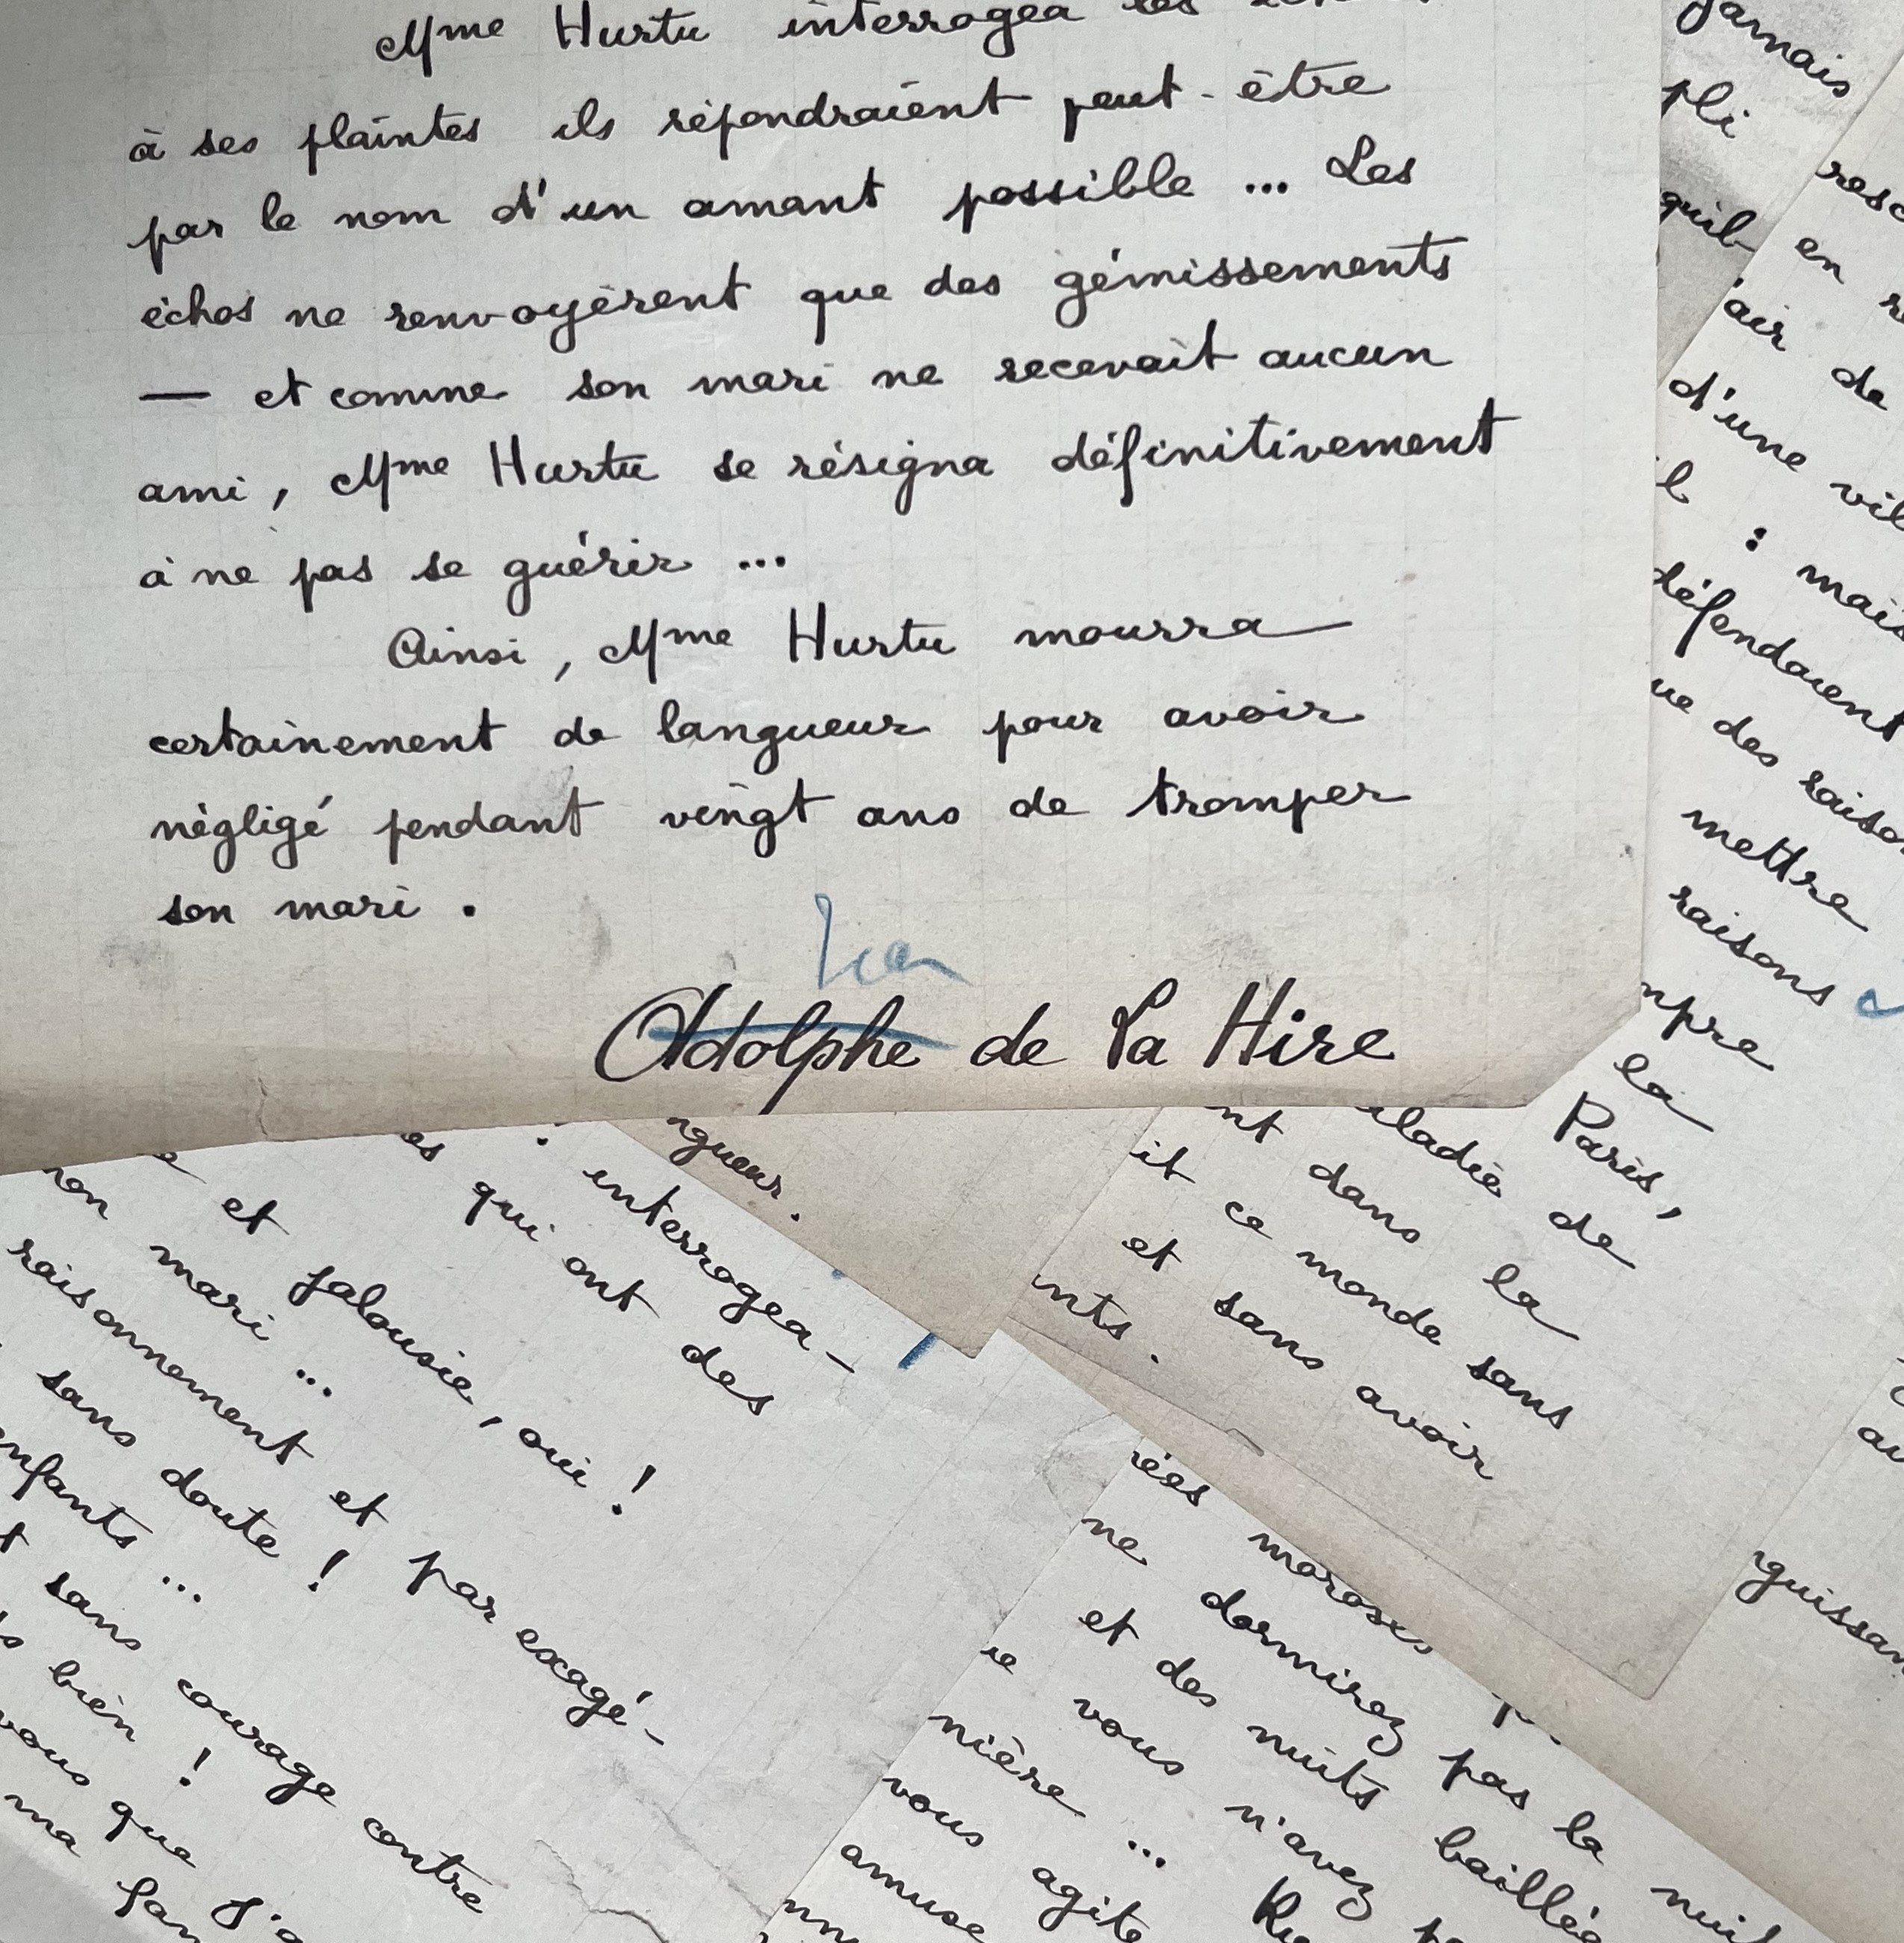 Mme Hurtu interrogea les
à ses plaintes ils répondraient peut-être
par le nom d'un amant possible ... Les
échos ne renvoyèrent que des gémissements
— et comme son mari ne recevait aucun
ami, Mme Hurtu se résigna définitivement
à ne pas se guérir ...
Ainsi, Mme Hurtu mourra
certainement de langueur pour avoir
négligé pendant vingt ans de tromper
son mari.
Jean
Adolphe de La Hire
jamais
pli
quil-
'air de
d'une vil
il : mais
défendaient
ue des raison
mettre
raisons
mpre
la
Paris,
resc
en re
de
ngueur.
es qui ont des
: interrogea-
et jalousie, oui !
mari ...
raisonnement et par exagé-
sans doute !
enfants ...
t sans courage contre
bien !
vous que J'a
ma fam
iladie de
nt dans la
it ce monde sans
et sans avoir
nts.
rées moroses
ne dormirez pas la nuit
et des nuits baillées
ue vous n'avez
nière ...
vous agite
amuse
guissan
au